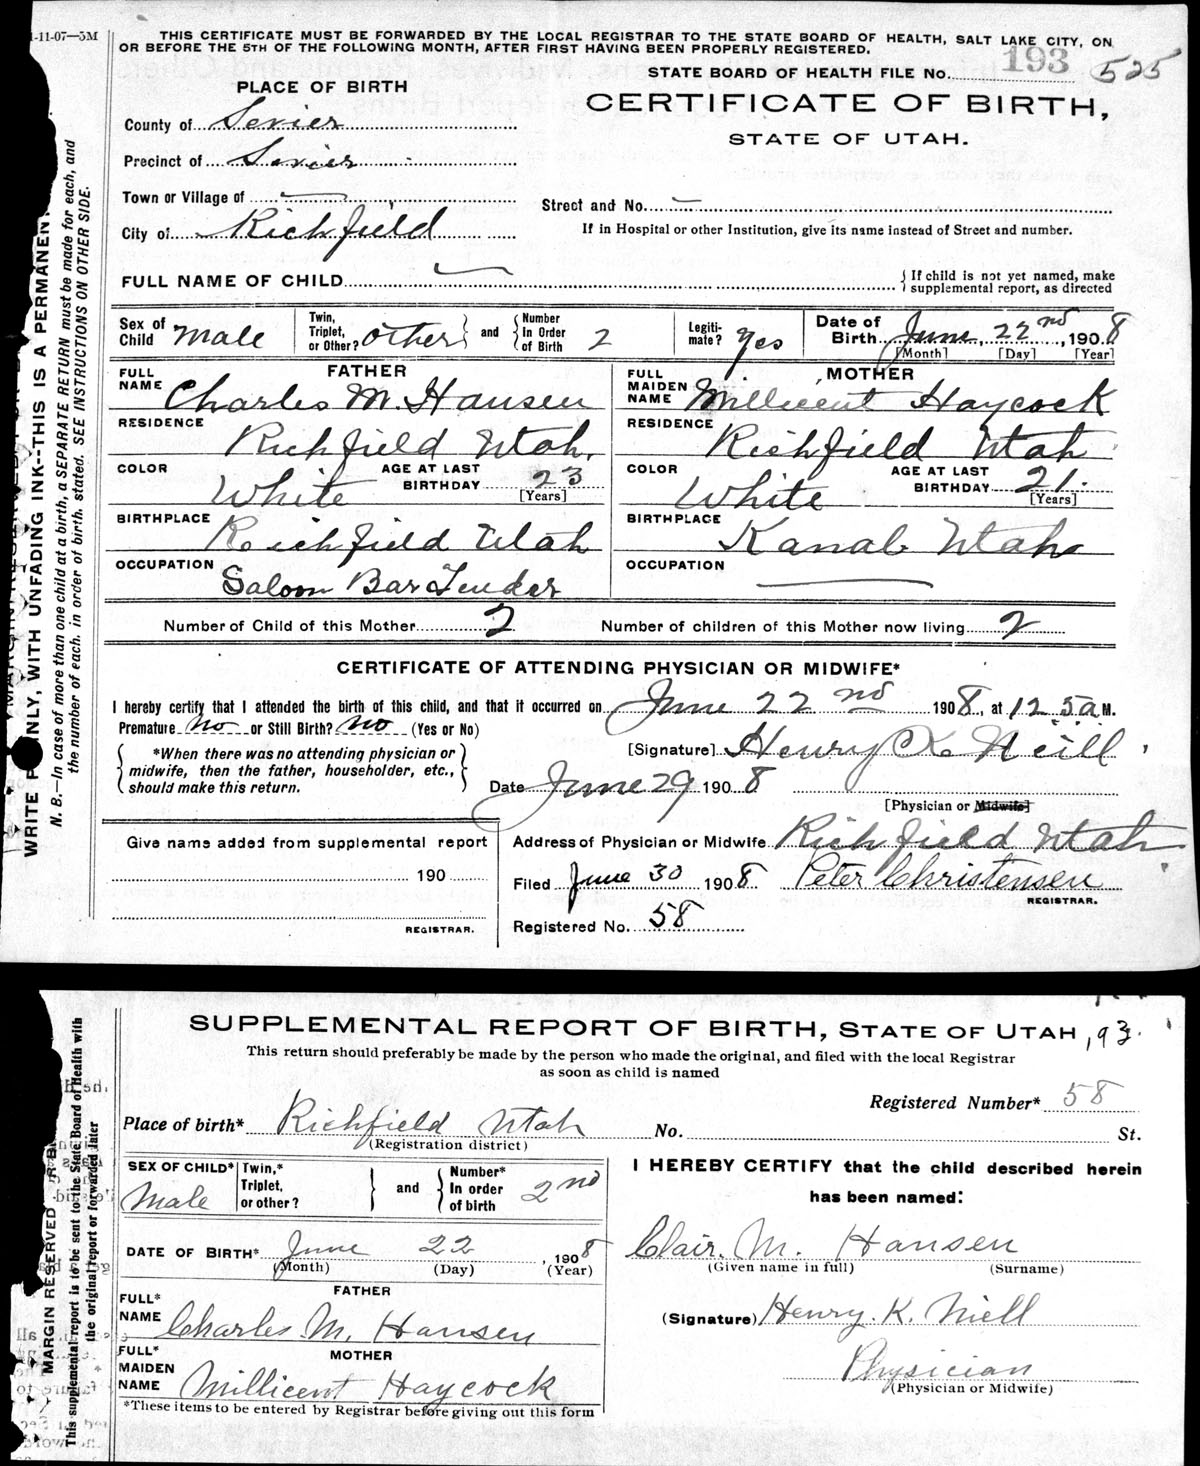 1-11-07—5M
THIS CERTIFICATE MUST BE FORWARDED BY THE LOCAL REGISTRAR TO THE STATE BOARD OF HEALTH, SALT LAKE CITY, ON
OR BEFORE THE 5TH OF THE FOLLOWING MONTH, AFTER FIRST HAVING BEEN PROPERLY REGISTERED.
STATE BOARD OF HEALTH FILE No. 193 525
PLACE OF BIRTH
CERTIFICATE OF BIRTH,
STATE OF UTAH.
County of Sevier
Precinct of Sevier
Town or Village of —
Street and No. —
City of Richfield
If in Hospital or other Institution, give its name instead of Street and number.
FULL NAME OF CHILD —
If child is not yet named, make
supplemental report, as directed
Sex of Child Male
Twin, Triplet, or Other? other and Number In Order of Birth 2
Legiti-mate? Yes
Date of Birth June 22nd, 1908
[Month] [Day] [Year]
FATHER
FULL NAME Charles M. Hansen
RESIDENCE Richfield Utah.
COLOR White AGE AT LAST BIRTHDAY 23 [Years]
BIRTHPLACE Reichfield Utah
OCCUPATION Saloon Bar Tender
MOTHER
FULL MAIDEN NAME Millicent Haycock
RESIDENCE Richfield Utah
COLOR White AGE AT LAST BIRTHDAY 21. [Years]
BIRTHPLACE Kanab Utah
OCCUPATION —
Number of Child of this Mother 2 Number of children of this Mother now living 2
CERTIFICATE OF ATTENDING PHYSICIAN OR MIDWIFE*
I hereby certify that I attended the birth of this child, and that it occurred on June 22nd 1908, at 12.5 a M.
Premature No or Still Birth? No (Yes or No)
*When there was no attending physician or
midwife, then the father, householder, etc.,
should make this return.
[Signature] Henry K Neill
Date June 29 1908
[Physician or Midwife]
Give name added from supplemental report
190
REGISTRAR.
Address of Physician or Midwife Richfield Utah
Filed June 30 1908. Peter Christensen
REGISTRAR.
Registered No. 58
WRITE NLY, WITH UNFADING INK--THIS IS A PERMANEN
N. B.—In case of more than one child at a birth, a SEPARATE RETURN must be made for each, and
the number of each, in order of birth, stated. SEE INSTRUCTIONS ON OTHER SIDE.
SUPPLEMENTAL REPORT OF BIRTH, STATE OF UTAH 193
This return should preferably be made by the person who made the original, and filed with the local Registrar
as soon as child is named
Registered Number* 58
Place of birth* Richfield Utah No. St.
(Registration district)
SEX OF CHILD* Male
Twin,* Triplet, or other? and Number* In order of birth 2nd
DATE OF BIRTH* June 22, 1908
(Month) (Day) (Year)
FATHER
FULL* NAME Charles M. Hansen
MOTHER
FULL* MAIDEN NAME Millicent Haycock
*These items to be entered by Registrar before giving out this form
I HEREBY CERTIFY that the child described herein
has been named:
Clair. M. Hansen
(Given name in full) (Surname)
(Signature) Henry. K. Niell
Physician
(Physician or Midwife)
MARGIN RESERVED
This supplemental report is to be sent to the State Board of Health with
the original report or forwarded later